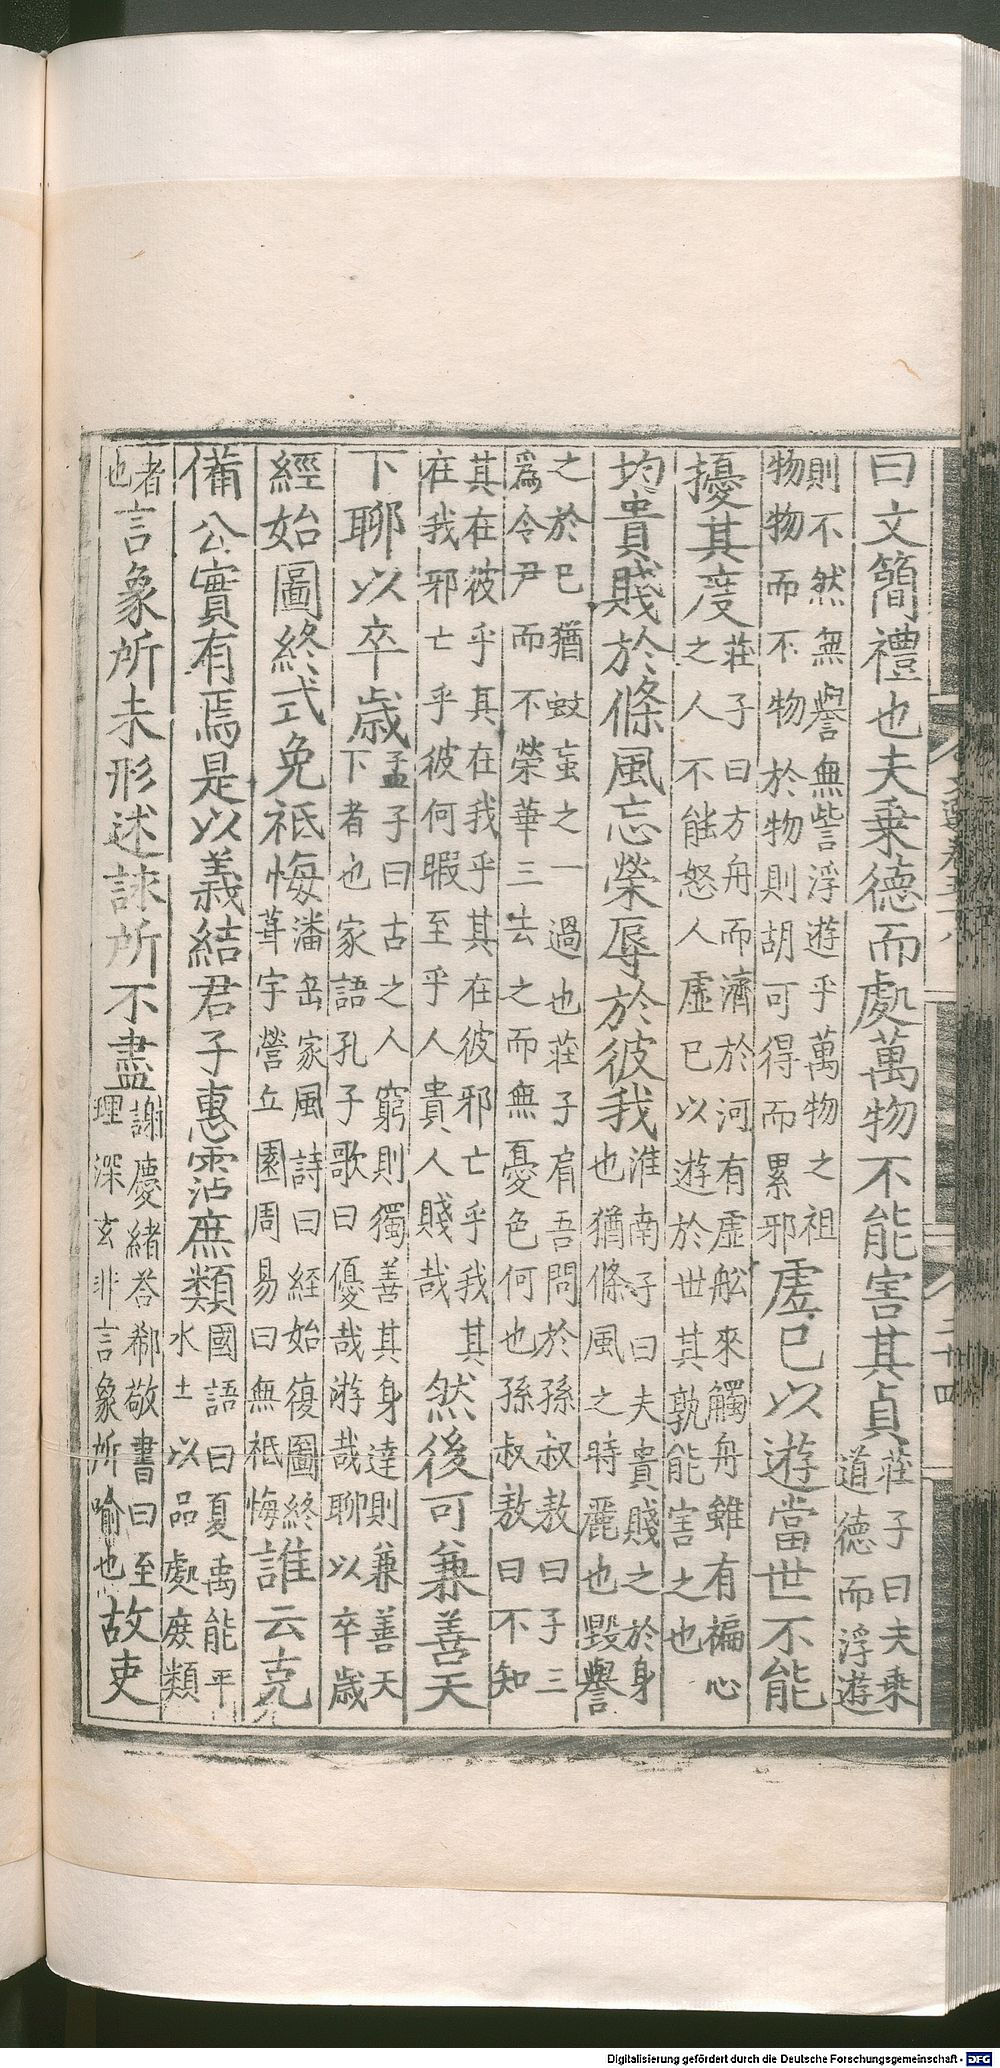 曰文簡禮也夫乗德而處萬物不能害其貞莊子曰夫乗道德而浮遊
則不然無譽無訾浮遊乎萬物之祖物物而不物於物則胡可得而累邪虗已以遊當世不能
擾其度莊子曰方舟而濟於河有虛舩來觸舟雖有褊心之人不能怒人虛已以遊於世其孰能害之也
均貴賤於條風忘榮辱於彼我淮南子曰夫貴賤之於身也猶條風之時麗也毀譽
之於已猶蚊䖟之一過也莊子肩吾問於孫叔敖曰子三爲令尹而不榮華三去之而無憂色何也孫叔敖曰不知
其在彼乎其在我乎其在彼邪亡乎我其在我邪亡乎彼何暇至乎人貴人賤哉然後可兼善天
下聊以卒歲孟子曰古之人窮則獨善其身達則兼善天下者也家語孔子歌曰優哉游哉聊以卒歲
經始圖終式免祗悔潘岳家風詩曰経始復圖終葺宇營丘園周易曰無祗悔誰云克
備公實有焉是以義結君子惠霑庶類國語曰夏禹能平水土以品處庶類
者也言象所未形述詠所不盡謝慶緒荅郗敬書曰至理深玄非言象所喻也故吏
Digitalisierung gefördert durch die Deutsche Forschungsgemeinschaft - DFG